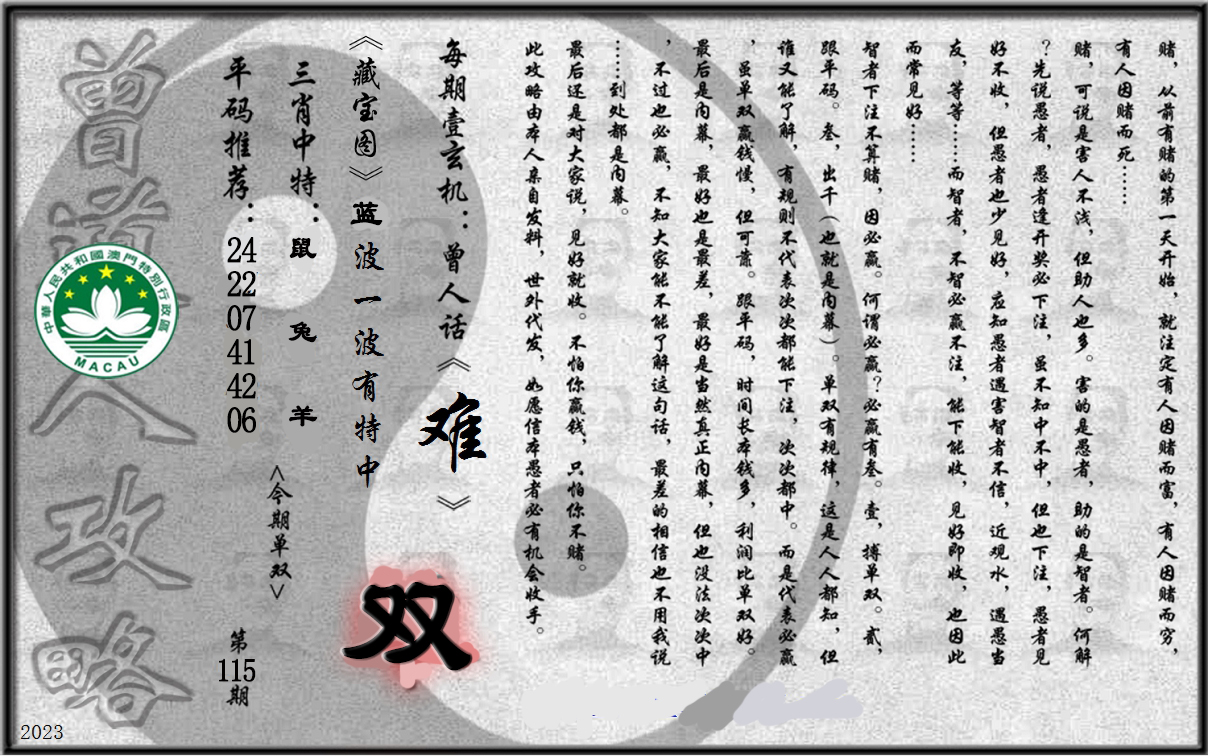 赌，从前有赌的第一天开始，就注定有人因赌而富，有人因赌而穷，
有人因赌而死……
赌，可说是害人不浅，但助人也多。害的是愚者，助的是智者。何解
？先说愚者，愚者逢开奖必下注，虽不知中不中，但也下注，愚者见
好不收，但愚者也少见好，应知愚者遇害智者不信，近观水，遇愚当
友，等等……而智者，不智必赢不注，能下能收，见好即收，也因此
而常见好……
智者下注不算赌，因必赢。何谓必赢？必赢有叁。壹，搏单双。贰，
跟平码。叁，出千（也就是内幕）。单双有规律，这是人人都知，但
谁又能了解，有规则不代表次次都能下注，次次都中。而是代表必赢
，虽单双赢钱慢，但可靠。跟平码，时间长本钱多，利润比单双好。
最后是内幕，最好也是最差，最好是当然真正内幕，但也没法次次中
，不过也必赢，不知大家能不能了解这句话，最差的相信也不用我说
……到处都是内幕。
最后还是对大家说，见好就收。不怕你赢钱，只怕你不赌。
此攻略由本人亲自发料，世外代发，如愿信本愚者必有机会收手。
每期壹玄机：曾人话《难》
《藏宝图》蓝波一波有特中
双
三肖中特：鼠 兔 羊
<今期单双>
平码推荐：24 22 07 41 42 06
第115期
曾道人攻略
中華人民共和國澳門特別行政區
MACAU
2023